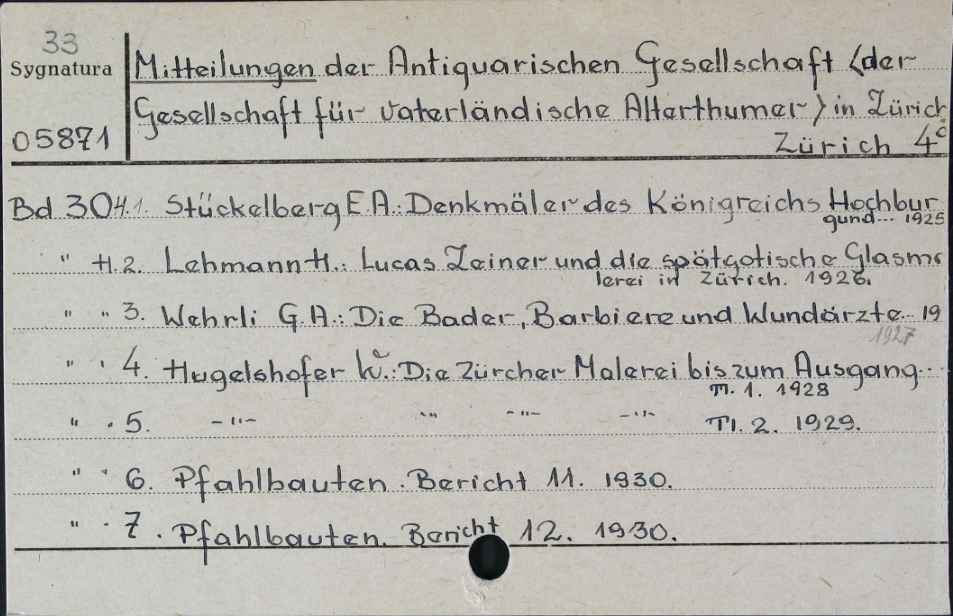 33
Sygnatura
05871
Mitteilungen der Antiquarischen Gesellschaft (der
Gesellschaft für vaterländische Alterthumer) in Zürich.
Zürich 4°
Bd 30 H.1. Stückelberg E.A.: Denkmäler des Königreichs Hochbur
gund... 1925
" H.2. Lehmann H.: Lucas Zeiner und die spätgotische Glasma
lerei in Zürich. 1926.
" " 3. Wehrli G.A.: Die Bader, Barbiere und Wundärzte... 19
1927
" " 4. Hugelshofer W.: Die Zürcher Malerei bis zum Ausgang...
Tl. 1. 1928
" " 5. -"- "" -"- -"- Tl. 2. 1929.
" " 6. Pfahlbauten. Bericht 11. 1930.
" " 7. Pfahlbauten. Bericht 12. 1930.